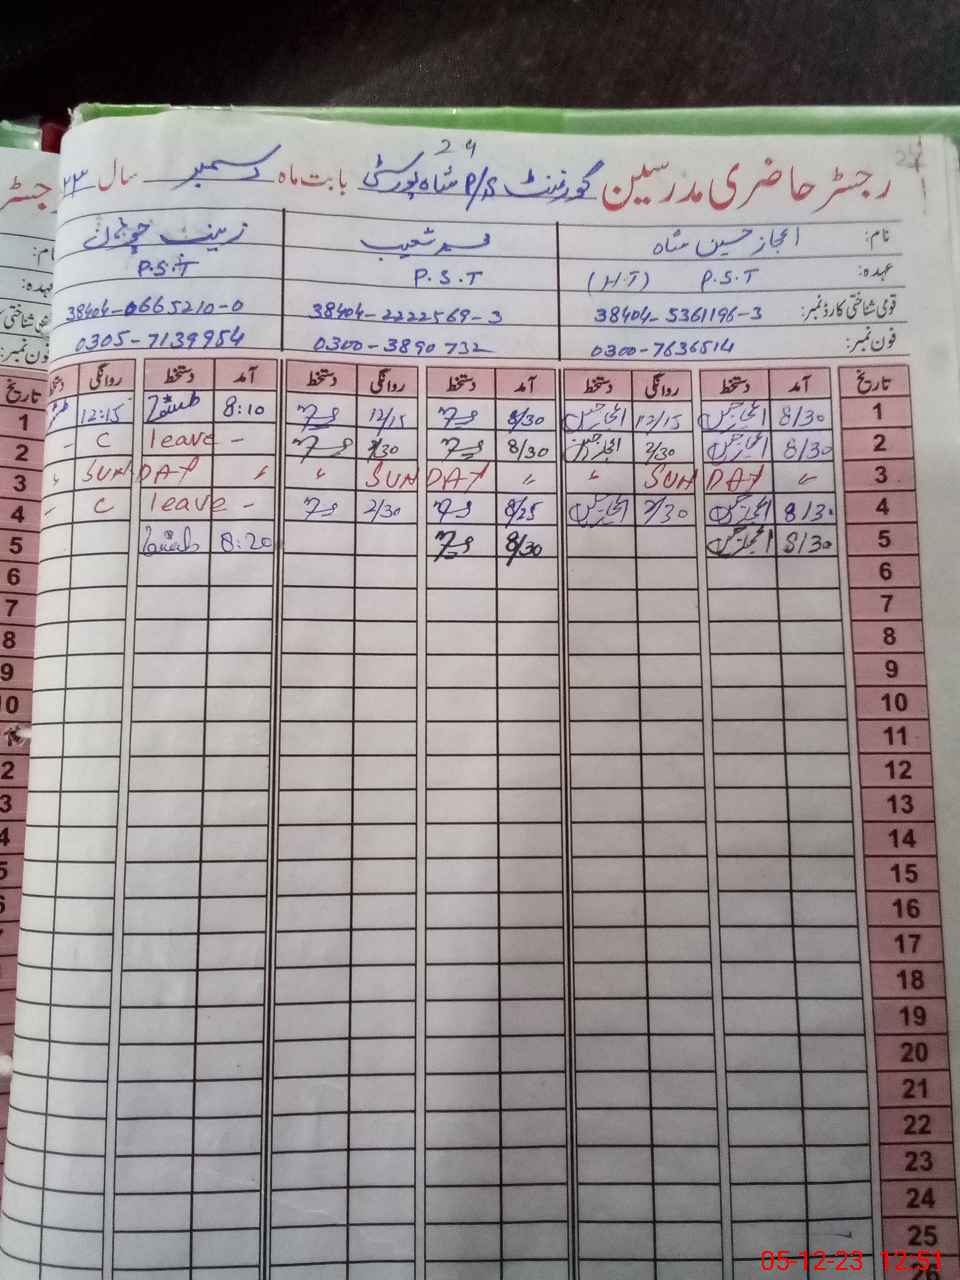 24
رجسٹر حاضری مدرسین گورنمنٹ P/S شاہ پور سٹی بابت ماہ دسمبر سال ۲۳
نام: اعجاز حسین شاہ
عہدہ: P.S.T (H.T) P.S.T P.S.T
قومی شناختی کارڈ نمبر: 38404-5361196-3 38404-2222569-3 38404-0665210-0
فون نمبر: 0300-7636514 0300-3890732 0305-7139954
تاریخ آمد دستخط روانگی دستخط آمد دستخط روانگی دستخط آمد دستخط روانگی
1 8/30 12/15 8/30 12/15 8:10 12:15
2 8/30 2/30 8/30 2/30 - leave C -
3 〃 SUNDAY 〃 〃 SUNDAY 〃 〃 SUNDAY 〃
4 8/30 2/30 8/25 2/30 - leave C -
5 8/30 8/30 8:20
6
7
8
9
10
11
12
13
14
15
16
17
18
19
20
21
22
23
24
25
26
05-12-23 12:51